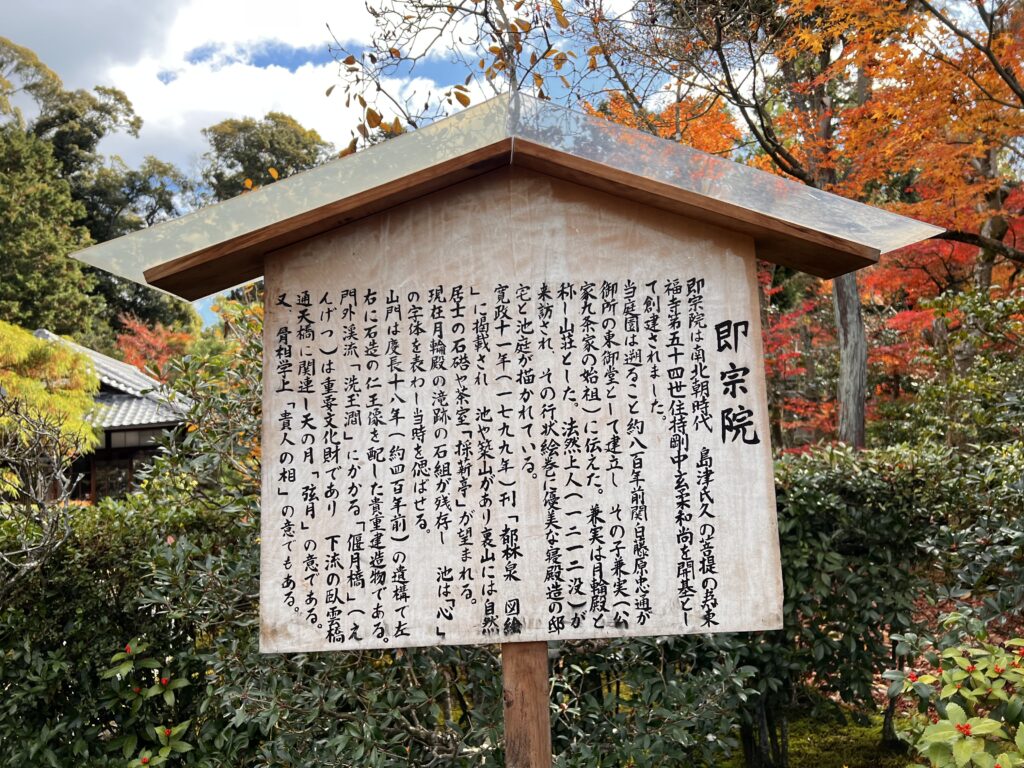 即宗院
即宗院は南北朝時代　島津氏久の菩提のため東
福寺第五十四世住持剛中玄柔和尚を開基とし
て創建されました。
当庭園は遡ること約八百年前関白藤原忠通が
御所の東御堂として建立し　その子兼実（公
家九条家の始祖）に伝えた。兼実は月輪殿と
称し山荘とした。法然上人（一二一二没）が
来訪され、その行状絵巻に優美な寝殿造の邸
宅と池庭が描かれている。
寛政十一年（一七九九年）刊「都林泉　図絵
」に掲載され　池や築山があり裏山には自然
居士の石碚や茶室「採薪亭」が望まれる。
現在月輪殿の滝跡の石組が残存し　池は「心」
の字体を表わし当時を偲ばせる。
山門は慶長十八年（約四百年前）の遺構で左
右に石造の仁王像を配した貴重建造物である。
門外渓流「洗玉澗」にかかる「偃月橋」（え
んげつ）は重要文化財であり　下流の臥雲橋
通天橋に関連し天の月「弦月」の意である。
又、骨相学上「貴人の相」の意でもある。